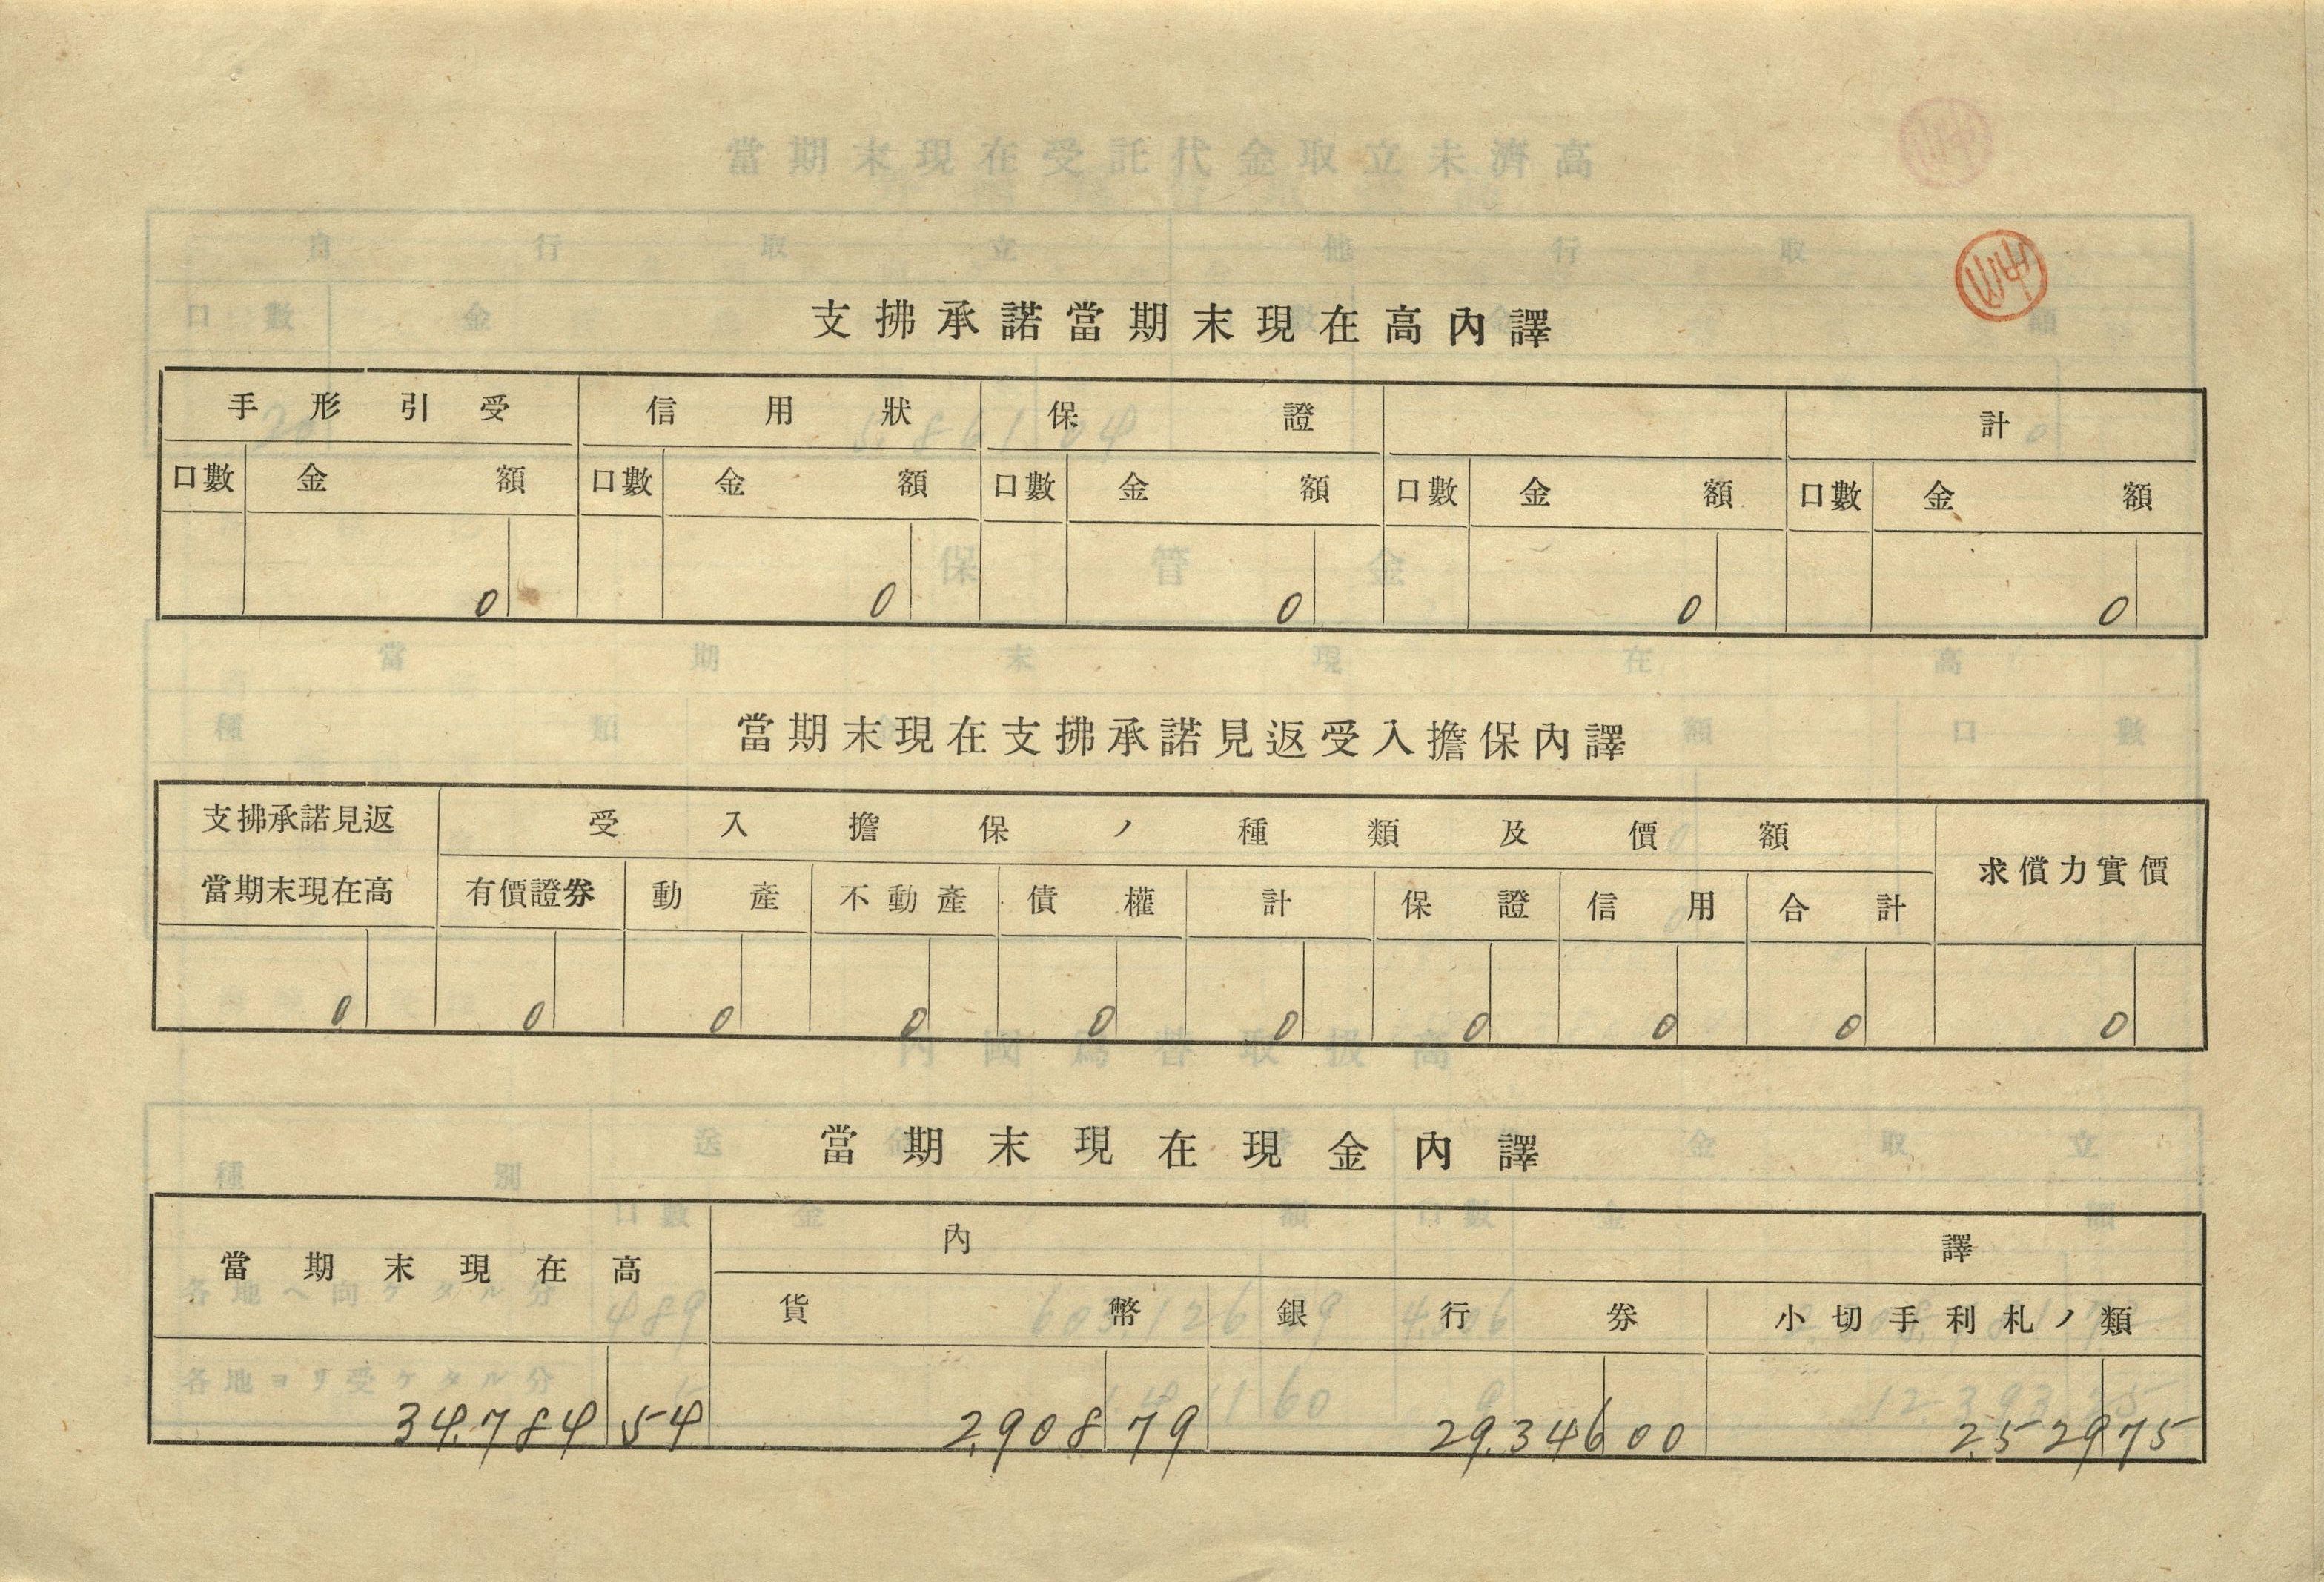 支拂承諾當期末現在高內譯
手形引受 信用狀 保證 計
口數 金額 口數 金額 口數 金額 口數 金額 口數 金額
0 0 0 0 0
當期末現在支拂承諾見返受入擔保內譯
支拂承諾見返 受入擔保ノ種類及價額 求償力實價
當期末現在高 有價證券 動產 不動產 債權 計 保證 信用 合計
0 0 0 0 0 0 0 0 0 0
當期末現在現金內譯
當期末現在高 內譯
貨幣 銀行券 小切手利札ノ類
34,784 54 2,908 79 29,346 00 2,529 75